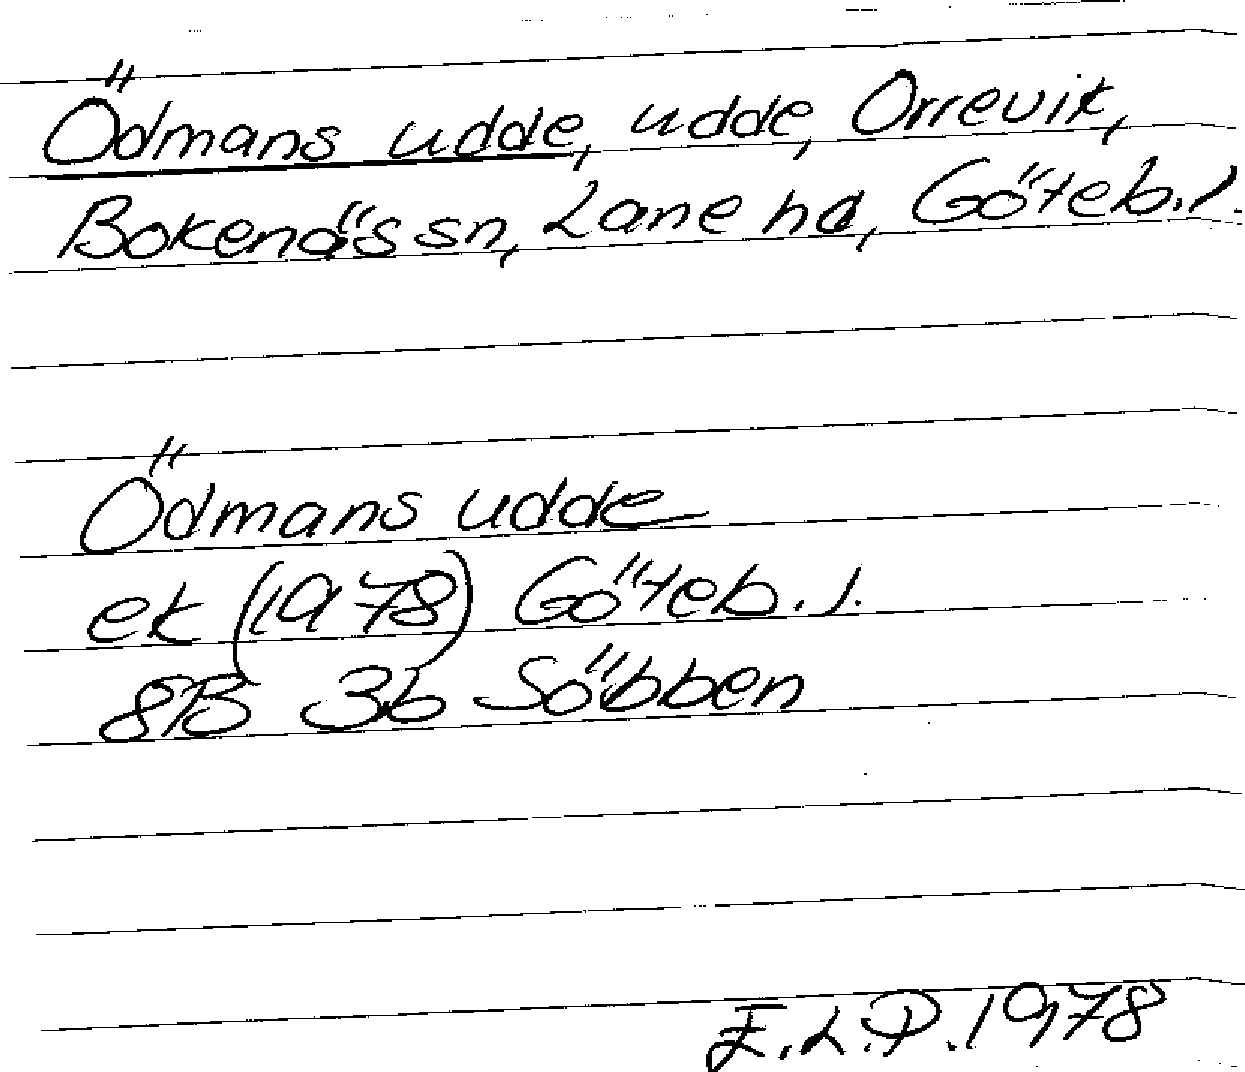 Ödmans udde, udde, Orrevik,
Bokenäs sn, Lane hd, Göteb. l.
Ödmans udde
ek (1978) Göteb. l.
8B 3b Söbben
E.L.P. 1978